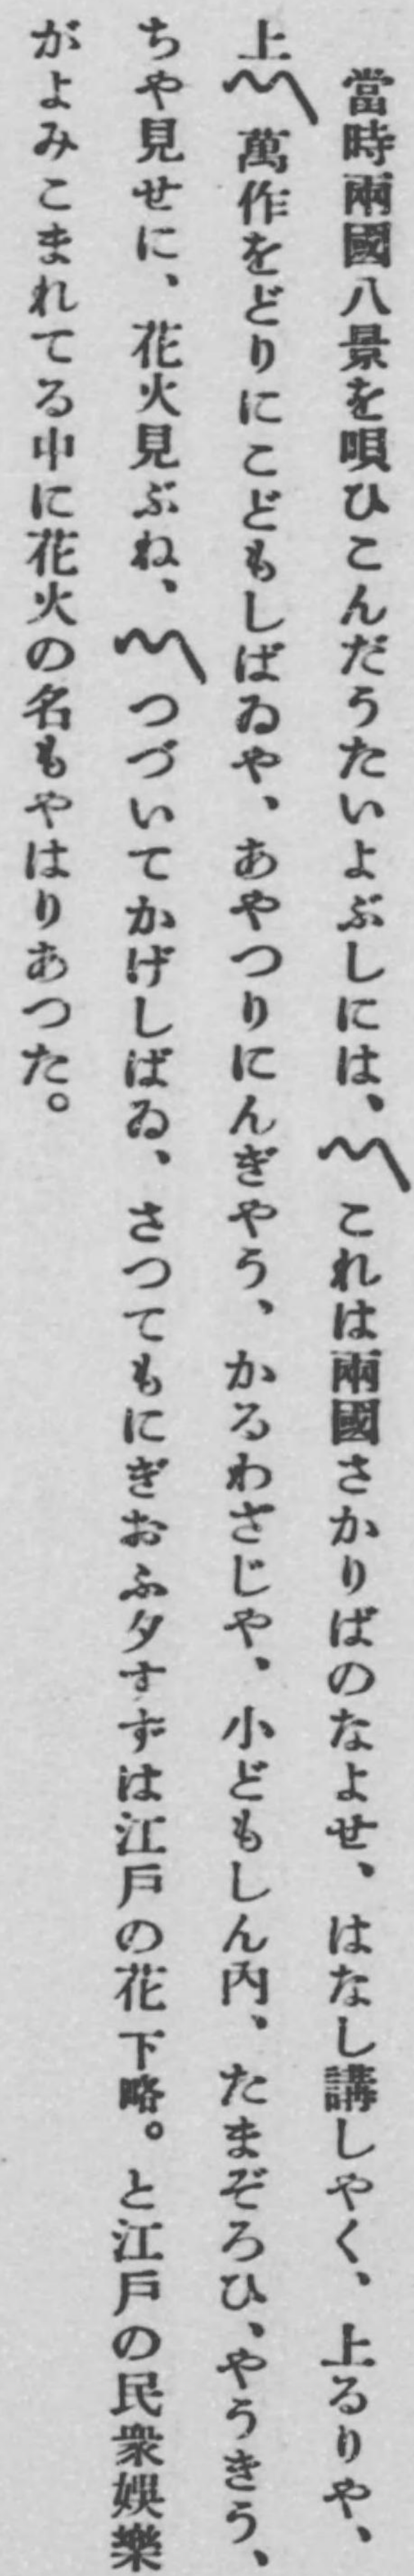 當時兩國八景を唄ひこんだうたいよぶしには、〽これは兩國さかりばのなよせ、はなし講しやく、上るりや、
上〽萬作をどりにこどもしばゐや、あやつりにんぎやう、かるわざじや、小どもしん內、たまぞろひ、やうきう、
ちや見せに、花火見ぶね、〽つづいてかげしばゐ、さつてもにぎおふ夕すずは江戶の花下略。と江戶の民衆娛樂
がよみこまれてる中に花火の名もやはりあつた。